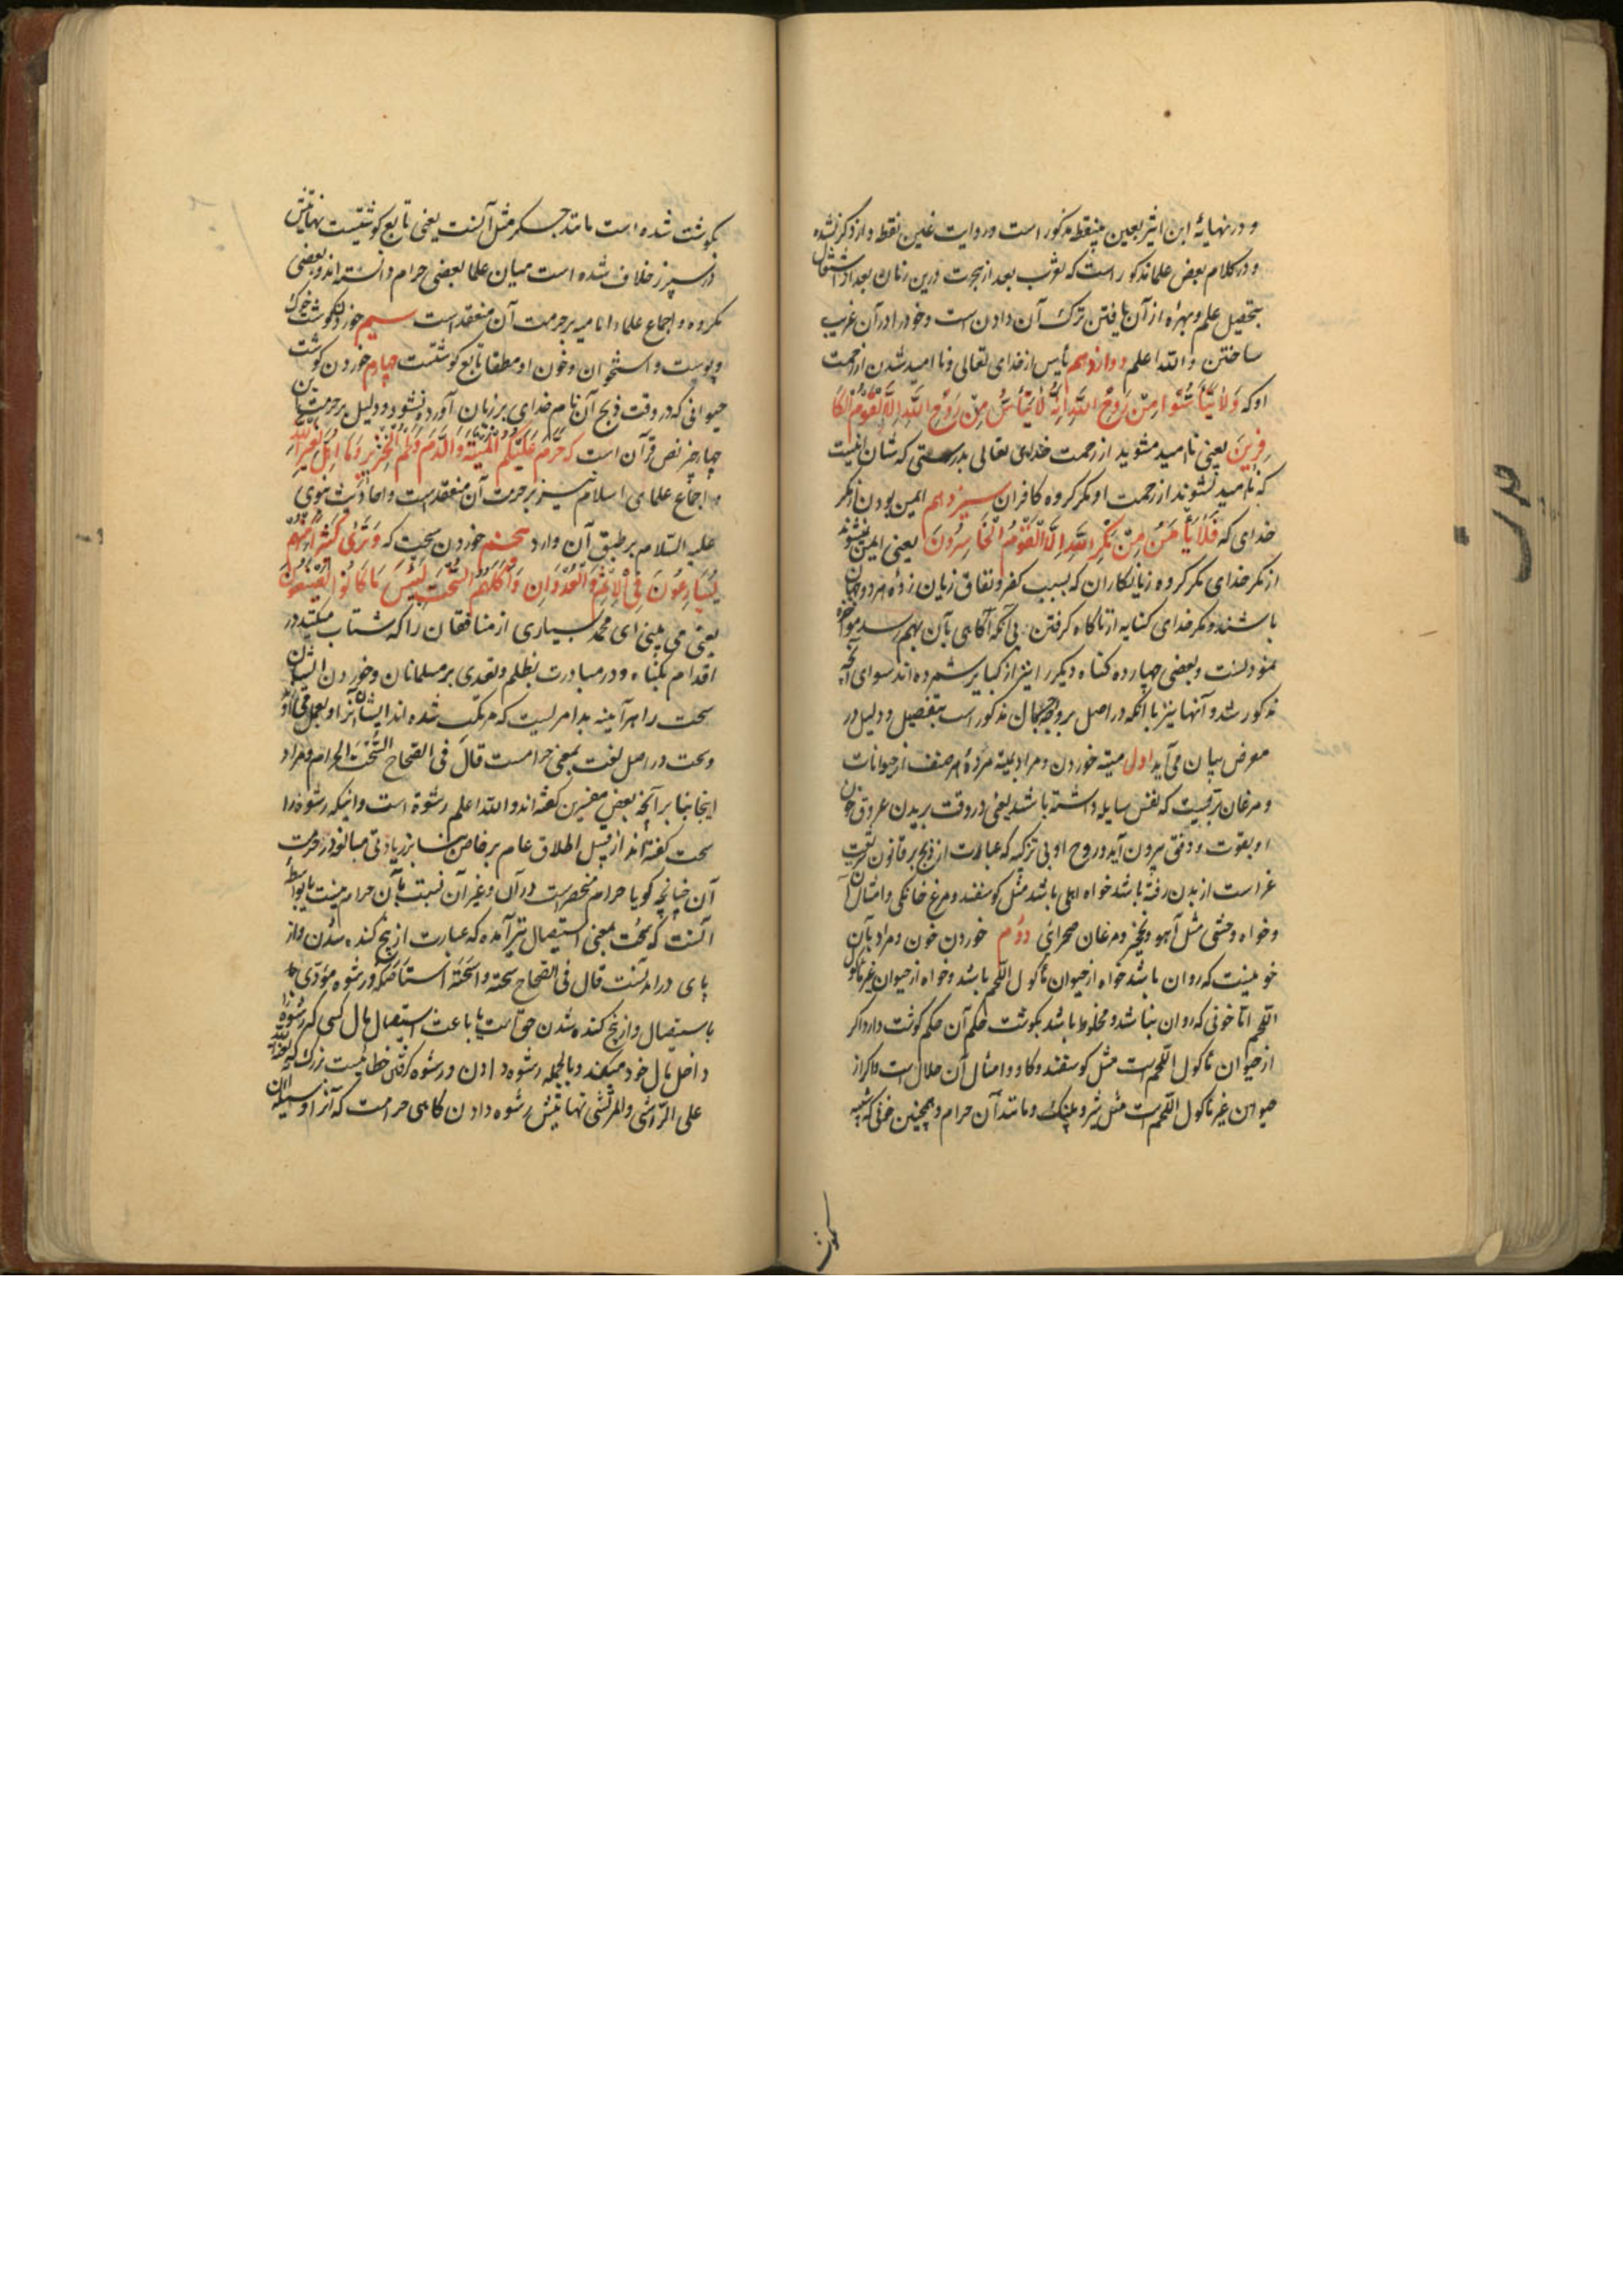 و در نهایهٔ ابن اثیر بعین بینقط مذکور است و روایت غین نقطه دار ذکر نشده
و در کلام بعض علما مذکور است که تعرب بعد از هجرت درین زمان بعد از اشتغال
بتحصیل علم و بهره از آن یافتن ترک آن دادن است و خود را در آن غریب
ساختن و الله اعلم دوازدهم یأس از خدای تعالی و نا امید شدن از رحمت
او که وَلا تَیْأَسُوا مِنْ رَوْحِ اللهِ اِنَّهُ لا یَیْأَسُ مِنْ رَوْحِ اللهِ اِلَّا الْقَوْمُ الْکَا
فِرِینَ یعنی ناامید مشوید از رحمت خدای تعالی بدرستی که شان اینست
که ناامید نشوند از رحمت او مکر کروه کافران سیزدهم ایمن بودن از مکر
خدای که فَلا یَأْمَنُ مِنْ مَکْرِ اللهِ اِلَّا الْقَوْمُ الْخَاسِرُونَ یعنی ایمن نشوند
از مکر خدای مکر کروه زیانکاران که بسبب کفر و نفاق زیان زدهٔ هر دو جهان
باشند و مکر خدای کنایه از ناکاه کرفتن بی آنکه آکاهی بآن بهم رسد مؤاخذه
نمودنست و بعضی چهارده کناه دیکر را نیز از کبایر شمرده اند سوای آنچه
مذکور شد و آنها نیز با آنکه در اصل بر وجه اجمال مذکور است بتفصیل و دلیل در
معرض بیان می آید اول میته خوردن و مراد بمیته مردهٔ هر صنف از حیوانات
و مرغان بریست که نفس سایله داشته باشد یعنی در وقت بریدن عروق خون
او بقوت و دفق بیرون آید و روح او بی تزکیه که عبارت از ذبح بر قانون شریعت
غراست از بدن رفته باشد خواه اهلی باشد مثل کوسفند و مرغ خانکی و امثال آن
و خواه وحشی مثل آهو و نخچیر و مرغان صحرائی دوم خوردن خون و مراد بآن
خونیست که روان باشد خواه از حیوان مأکول اللحم باشد و خواه از حیوان غیر مأکول
اللحم امّا خونی که روان نباشد و مخلوط باشد بکوشت حکم آن حکم کوشت دارد اکر
از حیوان مأکول اللحم است مثل کوسفند و کاو و امثال آن حلال است و اکر از
حیوان غیر مأکول اللحم است مثل شیر و پلنک و مانند آن حرام و همچنین خونی که شبیه
بکوشت شده است مانند جکر مثل آنست یعنی تابع کوشتیست نهایتش
در سپرز خلاف شده است میان علما بعضی حرام دانسته اند و بعضی
مکروه و اجماع علماء امامیه بر حرمت آن منعقد است سیم خوردن کوشت خوک
و پوست و استخوان و خون او مطلقا تابع کوشتست چهارم خوردن کوشت
حیوانی که در وقت ذبح آن نام خدای بر زبان آورده نشود و دلیل بر حرمت این
چهار چیز نص قرآن است که حُرِّمَ عَلَیْکُمُ الْمَیْتَةُ وَالدَّمُ وَلَحْمُ الْخِنْزِیرِ وَمَا اُهِلَّ لِغَیْرِ اللهِ
و اجماع علمای اسلام نیز بر حرمت آن منعقد است و احادیث نبوی
علیه السّلام بر طبق آن وارد پنجم خوردن سحت که وَتَرٰی کَثِیرًا مِنْهُمْ
یُسَارِعُونَ فِی الْاِثْمِ وَالْعُدْوَانِ وَاَکْلِهِمُ السُّحْتَ لَبِئْسَ مَا کَانُوا یَصْنَعُونَ
یعنی می بینی ای محمد بسیاری از منافقان را که شتاب میکنند در
اقدام بکناه و در مبادرت بظلم و تعدی بر مسلمانان و خوردن ایشان
سحت را هرآینه بد امریست که مرتکب شده اند ایشان آنرا و بعمل می آورند
و سحت در اصل لغت بمعنی حرامست قال فی الصحاح السُّحْت الحرام و مراد
اینجا بنا بر آنچه بعض مفسرین کفته اند والله اعلم رشوة است و اینکه رشوه را
سحت کفته اند از قبیل اطلاق عام بر خاص بنا بر زیادتی مبالغه در حرمت
آن چنانچه کویا حرام منحصر است در آن و غیر آن نسبت بآن حرام نیست یا بواسطهٔ
آنست که سُحْت بمعنی استیصال نیز آمده که عبارت از بیخ کنده شدن و از
پای در آمدنست قال فی الصحاح سحته و اسحته استأصله و رشوه مؤدّی
باستیصال و از بیخ کنده شدن حق است یا باعث استیصال مال کسی که رشوه را
داخل مال خود میکند و بالجمله رشوه دادن و رشوه کرفتن خطائیست بزرک که لعن الله
علی الرّاشی والمرتشی نهایتش رشوه دادن کاهی حرامست که آنرا وسیلهٔ آن
بکوشت